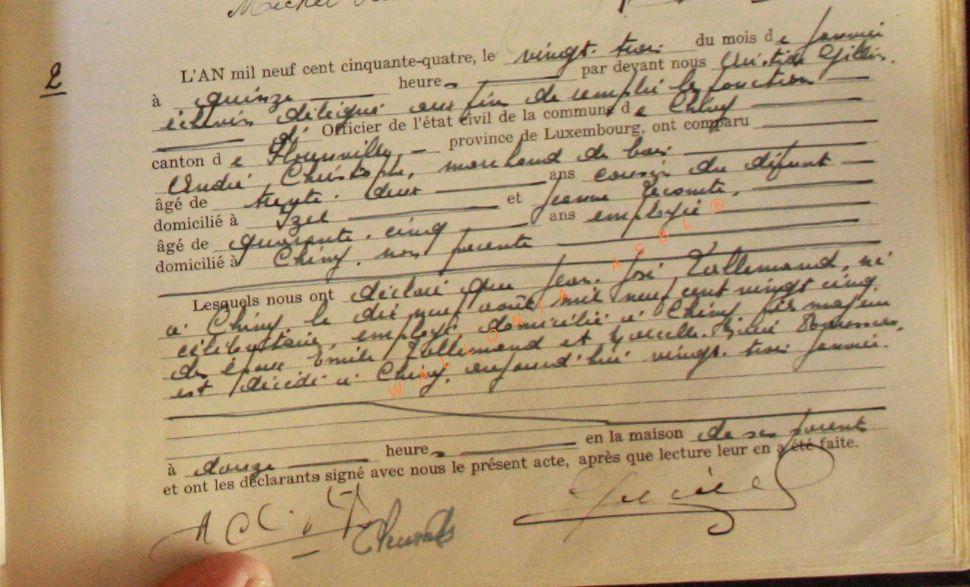 Michel
2
L'AN mil neuf cent cinquante-quatre, le vingt-trois du mois de janvier
à quinze heures par devant nous Aristide Gillin.
échevin délégué aux fin de remplir les fonctions
de Officier de l'état civil de la commune de Chiny
canton de Florenville province de Luxembourg, ont comparu
André Christophe, marchand de bois
âgé de trente-deux ans cousin du défunt
domicilié à Izel et Jeanne Lecomte,
âgé de quarante-cinq ans employée
domicilié à Chiny, non parente
Lesquels nous ont déclaré que Jean José Lallemand, né
à Chiny le dix neuf août mil neuf cent vingt cinq,
célibataire, employé domicilié à Chiny fils majeur
des époux Emile Lallemand et Marcelle
est décédé à Chiny, aujourd'hui vingt-trois janvier.
à douze heures en la maison de ses parents
et ont les déclarants signé avec nous le présent acte, après que lecture leur en a été faite.
WALLONIA ACBL ®